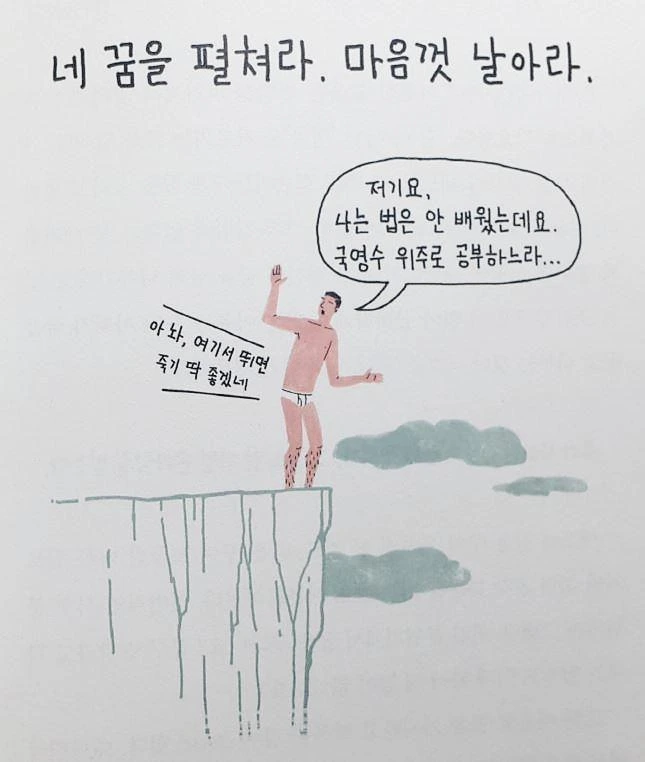 네 꿈을 펼쳐라. 마음껏 날아라.
저기요,
나는 법은 안 배웠는데요.
국영수 위주로 공부하느라...
아 놔, 여기서 뛰면
죽기 딱 좋겠네